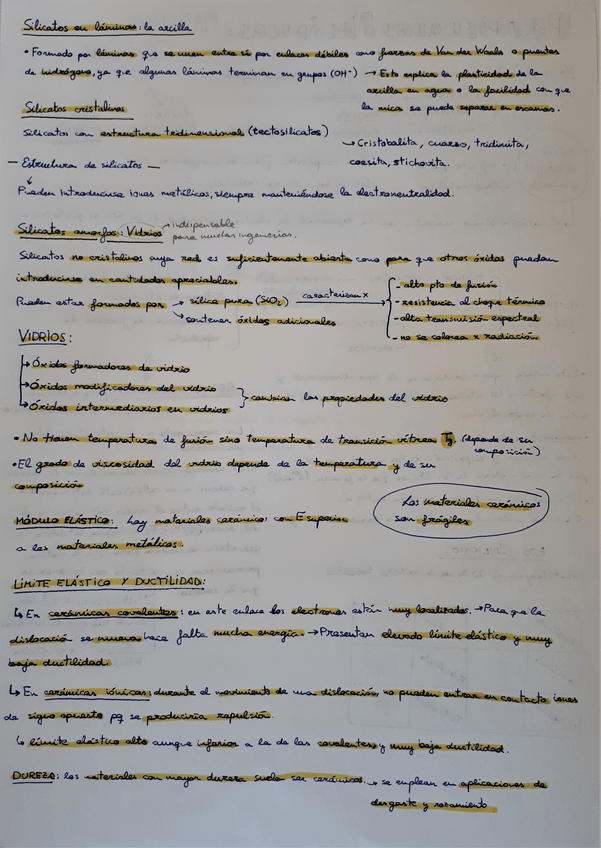 Silicatos en láminas: la arcilla
• Formado por láminas que se unen entre sí por enlaces débiles como fuerzas de Van der Waals o puentes
de hidrógeno, ya que algunas láminas terminan en grupos (OH⁻) → Esto explica la plasticidad de la
arcilla en agua o la facilidad con que
la mica se puede separar en escamas.
Silicatos cristalinos
Silicatos con estructura tridimensional (tectosilicatos)
↳ Cristobalita, cuarzo, tridimita,
coesita, stichovita.
— Estructura de silicatos —
↓
Pueden introducirse iones metálicos, siempre manteniéndose la electroneutralidad.
Silicatos amorfos: Vidrios → Indispensable
para muchas ingenierías.
Silicatos no cristalinos cuya red es suficientemente abierta como para que otros óxidos puedan
introducirse en cantidades apreciables.
Pueden estar formados por → sílica pura (SiO₂) caracterizan x → - alto pto de fusión
- resistencia al choque térmico
↳ contener óxidos adicionales - alta transmisión espectral
- no se colorea x radiación
VIDRIOS:
→ Óxidos formadores de vidrio
→ Óxidos modificadores del vidrio
→ Óxidos intermediarios en vidrios } cambian las propiedades del vidrio
• No tienen temperatura de fusión sino temperatura de transición vítrea Tg. (depende de su
composición)
• El grado de viscosidad del vidrio depende de la temperatura y de su
composición
Los materiales cerámicos
son frágiles
MÓDULO ELÁSTICO: hay materiales cerámicos con E superior
a los materiales metálicos.
LÍMITE ELÁSTICO Y DUCTILIDAD:
↳ En cerámicas covalentes: en este enlace los electrones están muy localizados. → Para que la
dislocació se mueva hace falta mucha energía. → Presentan elevado límite elástico y muy
baja ductilidad.
↳ En cerámicas iónicas: durante el movimiento de una dislocación, no pueden entrar en contacto iones
de signo opuesto pq se produciría repulsión.
↳ límite elástico alto aunque inferior a la de las covalentes, y muy baja ductilidad.
DUREZA: los materiales con mayor dureza suele ser cerámicos. → se emplean en aplicaciones de
desgaste y rozamiento